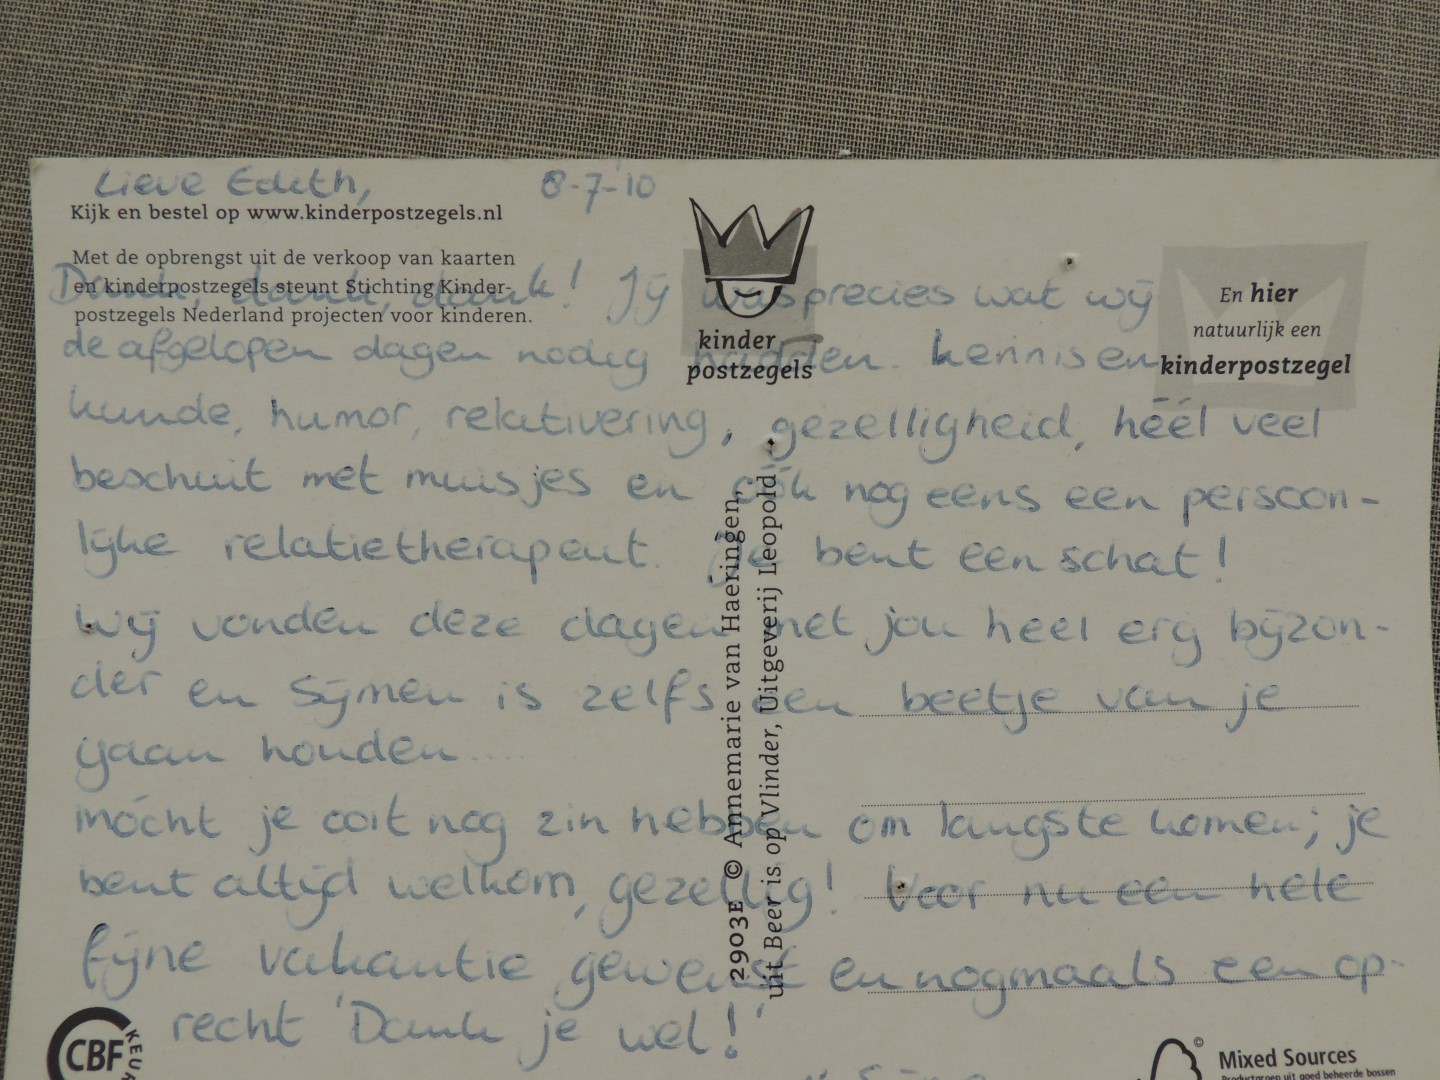 Lieve Edith, 8-7-'10
Kijk en bestel op www.kinderpostzegels.nl
Met de opbrengst uit de verkoop van kaarten
en kinderpostzegels steunt Stichting Kinder-
postzegels Nederland projecten voor kinderen.
kinder
postzegels
En hier
natuurlijk een
kinderpostzegel
Dank, dank, dank! Jij was precies wat wij
de afgelopen dagen nodig hadden. Kennis en
kunde, humor, relativering, gezelligheid, héél veel
beschuit met muisjes en óók nog eens een persoon-
lijke relatietherapeut. Je bent een schat!
Wij vonden deze dagen met jou heel erg bijzon-
der en Sijmen is zelfs een beetje van je
gaan houden.....
mócht je ooit nog zin hebben om langs te komen; je
bent altijd welkom, gezellig! Voor nu een hele
fijne vakantie gewenst en nogmaals een op-
recht 'Dank je wel!'
2903E © Annemarie van Haeringen,
uit Beer is op Vlinder, Uitgeverij Leopold
CBF
KEUR
©
Mixed Sources
Productgroep uit goed beheerde bossen